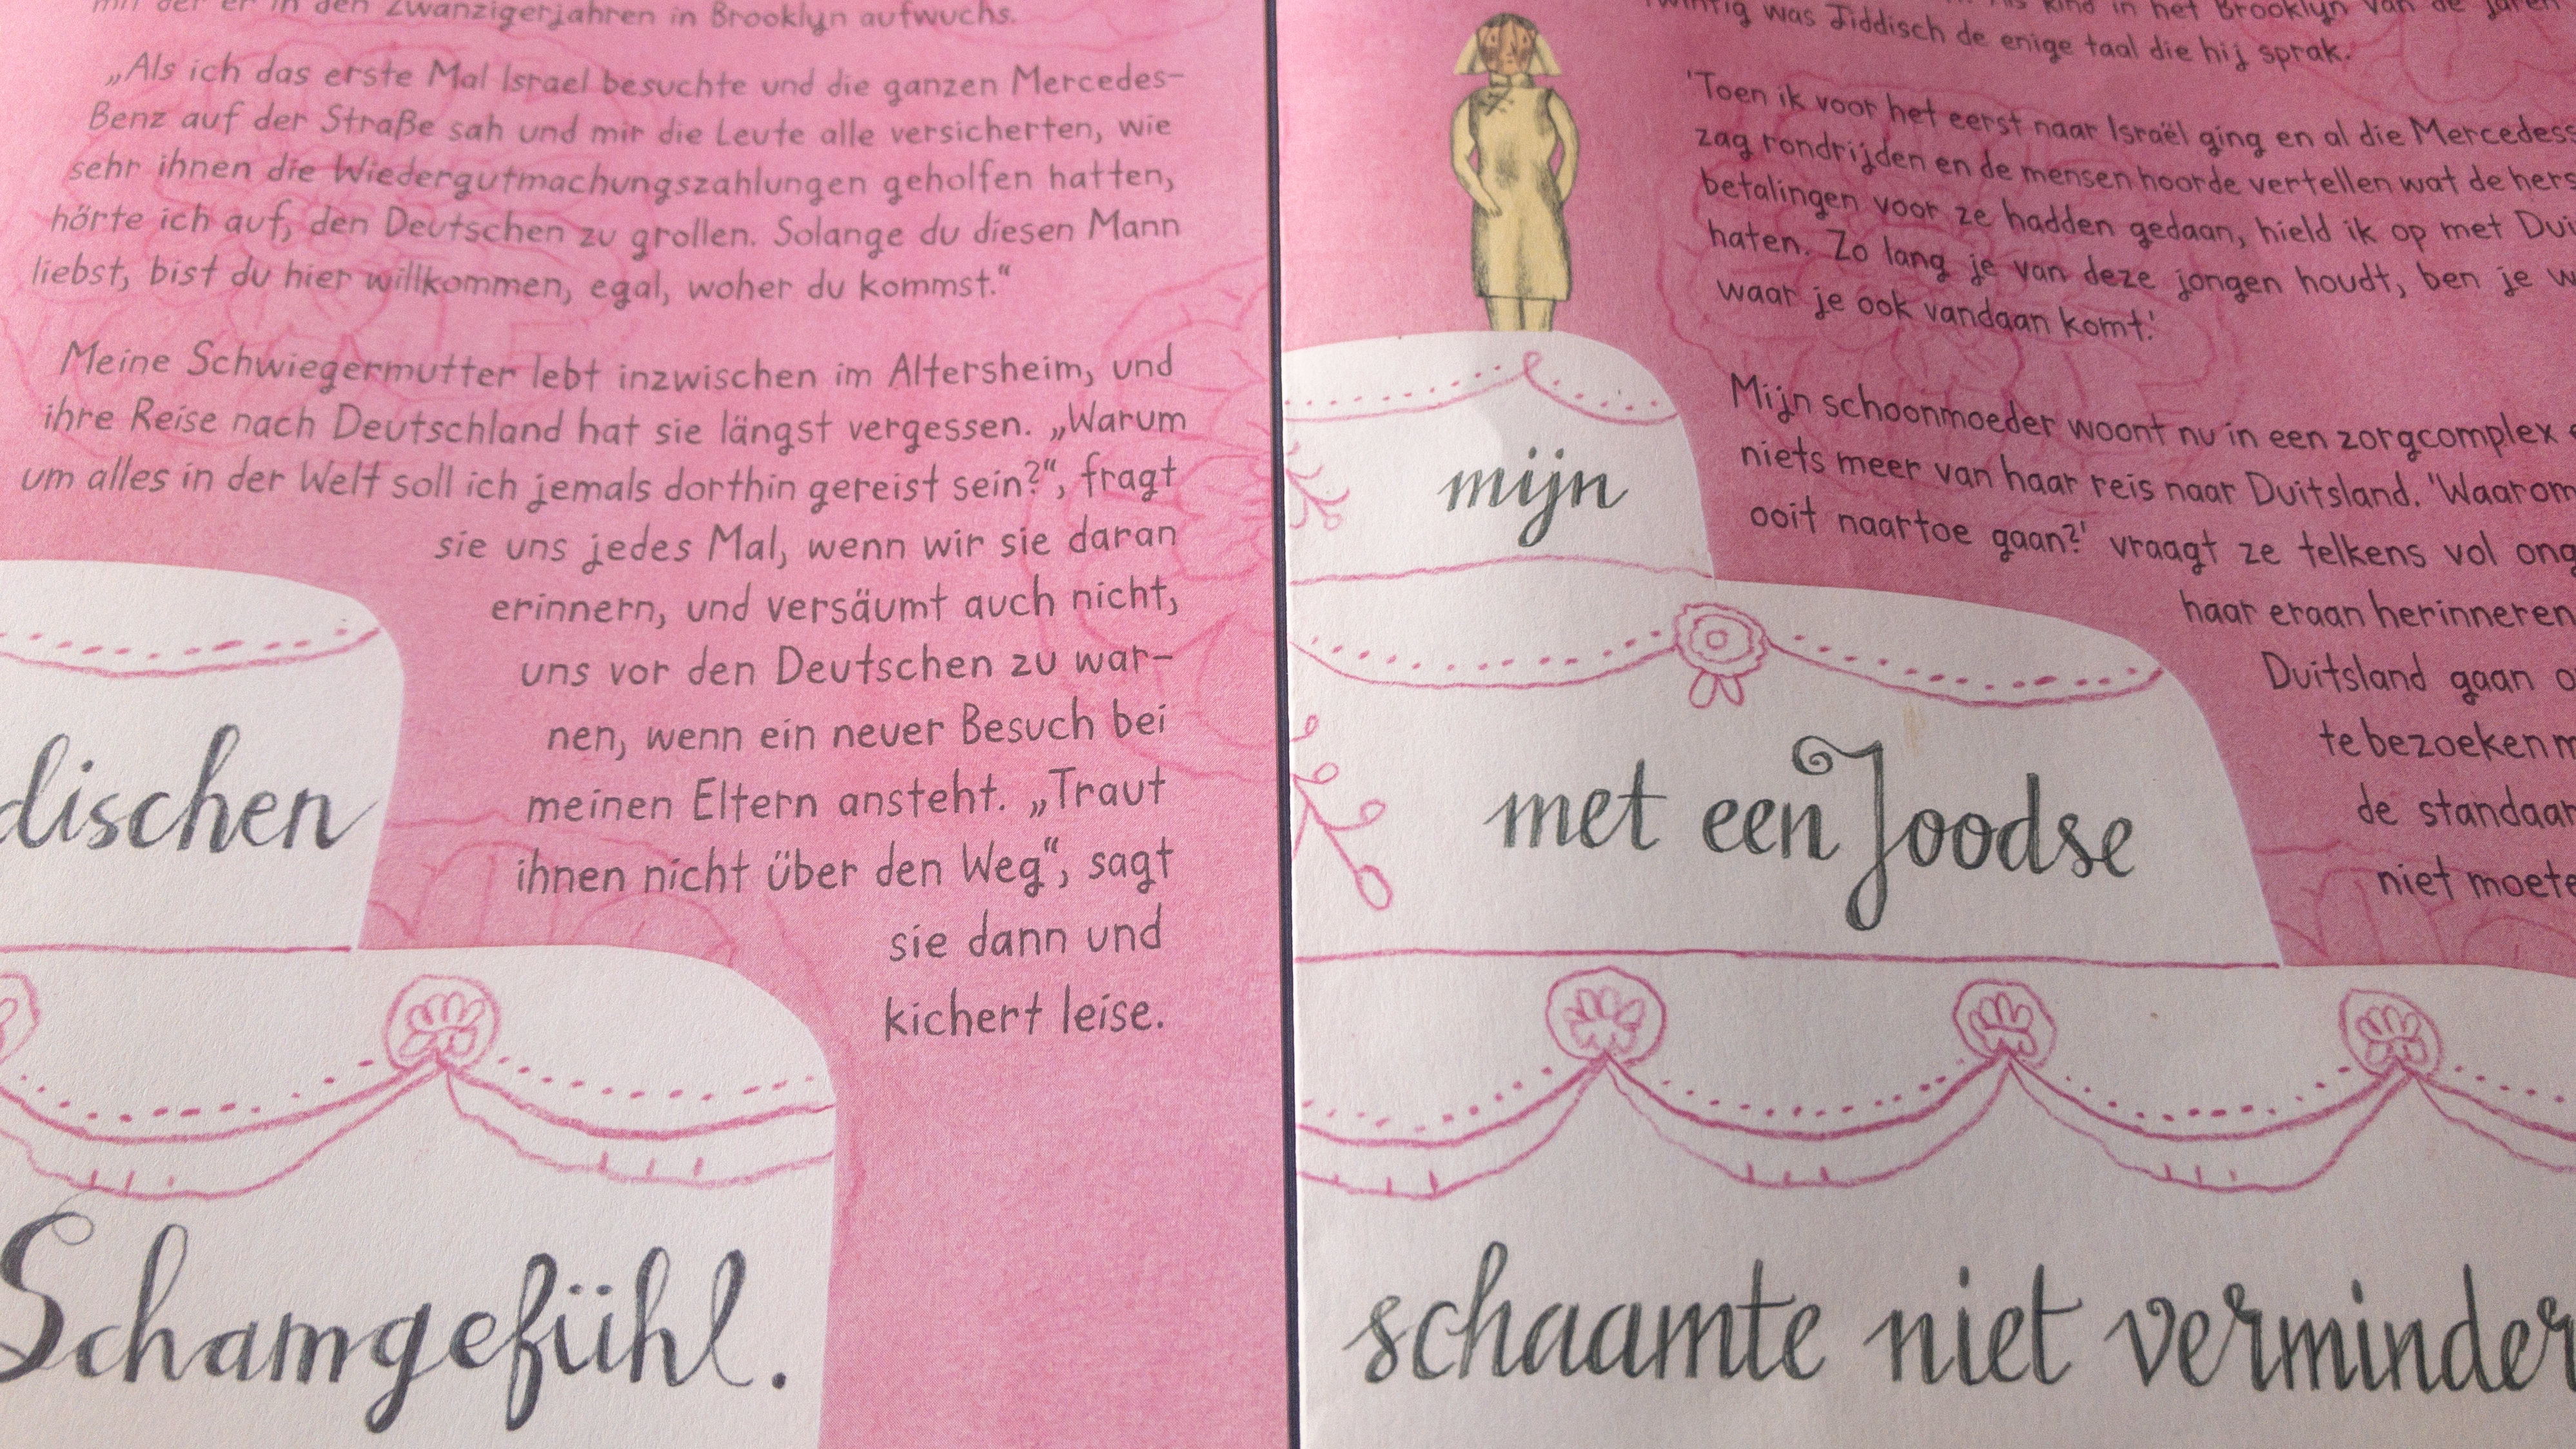 mit der er in den Zwanzigerjahren in Brooklyn aufwuchs.
„Als ich das erste Mal Israel besuchte und die ganzen Mercedes-
Benz auf der Straße sah und mir die Leute alle versicherten, wie
sehr ihnen die Wiedergutmachungszahlungen geholfen hatten,
hörte ich auf, den Deutschen zu grollen. Solange du diesen Mann
liebst, bist du hier willkommen, egal, woher du kommst.“
Meine Schwiegermutter lebt inzwischen im Altersheim, und
ihre Reise nach Deutschland hat sie längst vergessen. „Warum
um alles in der Welt soll ich jemals dorthin gereist sein?“, fragt
sie uns jedes Mal, wenn wir sie daran
erinnern, und versäumt auch nicht,
uns vor den Deutschen zu war-
nen, wenn ein neuer Besuch bei
meinen Eltern ansteht. „Traut
ihnen nicht über den Weg“, sagt
sie dann und
kichert leise.
dischen
Schamgefühl.
kind in het Brooklyn van de jaren
twintig was Jiddisch de enige taal die hij sprak.
'Toen ik voor het eerst naar Israël ging en al die Mercedess
zag rondrijden en de mensen hoorde vertellen wat de hers
betalingen voor ze hadden gedaan, hield ik op met Dui
haten. Zo lang je van deze jongen houdt, ben je w
waar je ook vandaan komt.'
Mijn schoonmoeder woont nu in een zorgcomplex
niets meer van haar reis naar Duitsland. 'Waarom
ooit naartoe gaan?' vraagt ze telkens vol ong
haar eraan herinneren
Duitsland gaan o
te bezoeken m
de standaar
niet moete
mijn
met een Joodse
schaamte niet verminder